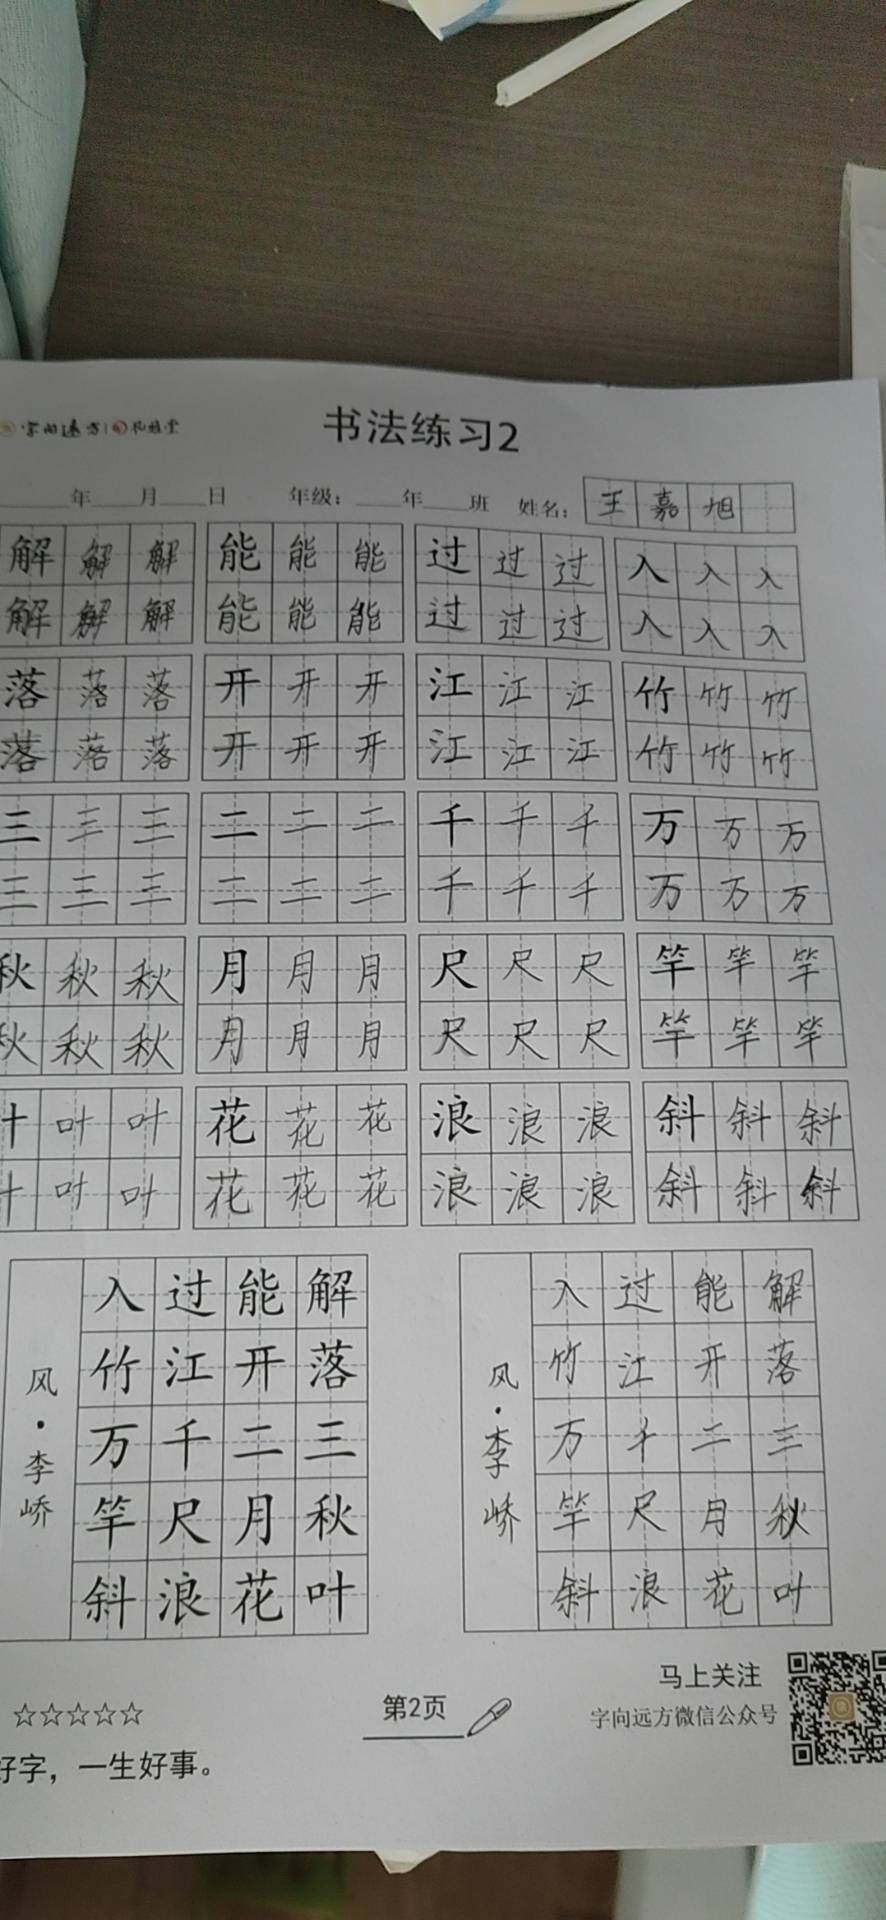 字向远方
书法练习2
年 月 日 年级： 年 班 姓名： 王嘉旭
解 解 解 能 能 能 过 过 过 入 入 入
解 解 解 能 能 能 过 过 过 入 入 入
落 落 落 开 开 开 江 江 江 竹 竹 竹
落 落 落 开 开 开 江 江 江 竹 竹 竹
三 三 三 二 二 二 千 千 千 万 万 万
三 三 三 二 二 二 千 千 千 万 万 万
秋 秋 秋 月 月 月 尺 尺 尺 竿 竿 竿
秋 秋 秋 月 月 月 尺 尺 尺 竿 竿 竿
叶 叶 花 花 花 浪 浪 浪 斜 斜 斜
叶 叶 花 花 花 浪 浪 浪 斜 斜 斜
解落三秋叶
能开二月花
过江千尺浪
入竹万竿斜
风·李峤
解落三秋叶
能开二月花
过江千尺浪
入竹万竿斜
风·李峤
☆☆☆☆☆
好字，一生好事。
第2页
马上关注
字向远方微信公众号